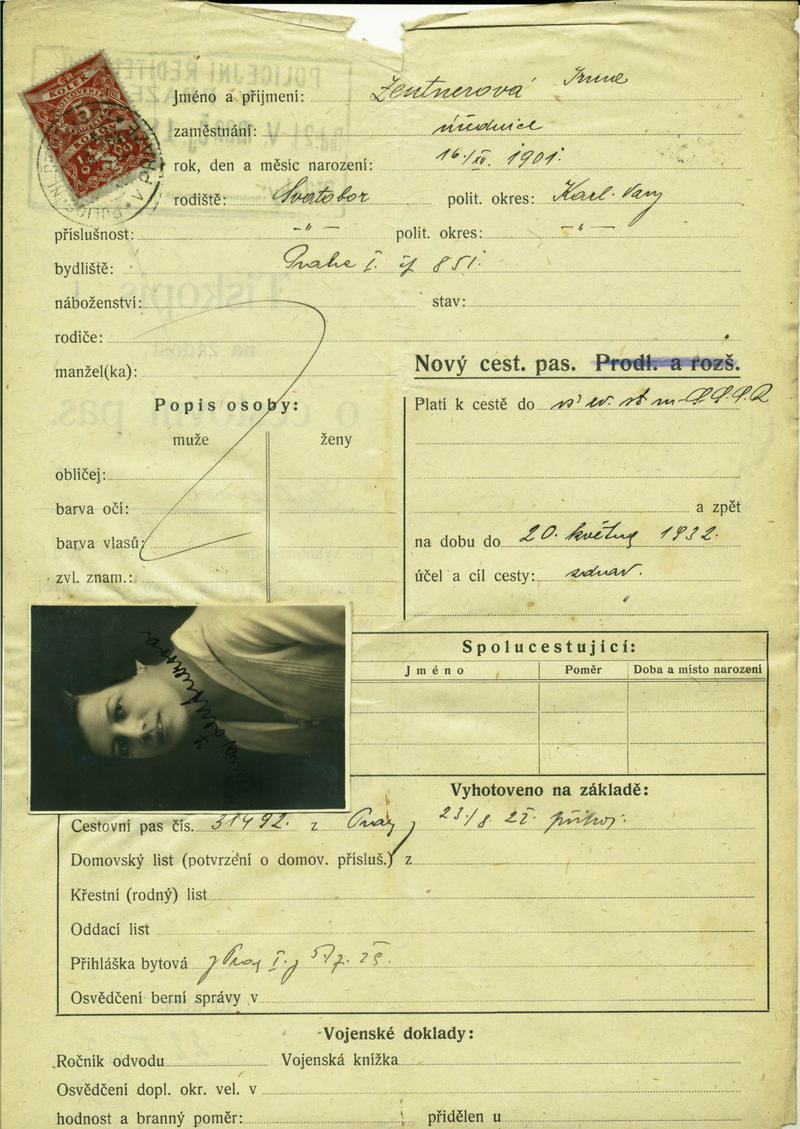 KOLEK
5
KORUN
Jméno a příjmení: Zentnerová Irma
zaměstnání: úřednice
rok, den a měsíc narození: 16./XII. 1901.
rodiště: Svatobor polit. okres: Karl. Vary
příslušnost: -"- polit. okres: -"-
bydliště: Praha I. čp 851.
náboženství: stav:
rodiče:
manžel(ka):
Nový cest. pas. Prodl. a rozš.
Popis osoby:
muže ženy
obličej:
barva očí:
barva vlasů:
zvl. znam.:
Platí k cestě do S.S.S.R
a zpět
na dobu do 20. května 1932.
účel a cíl cesty:
Spolucestující:
Jméno Poměr Doba a místo narození
Vyhotoveno na základě:
Cestovní pas čís. 31492. z 23/8. 27.
Domovský list (potvrzení o domov. přísluš.) z
Křestní (rodný) list
Oddací list
Přihláška bytová
Osvědčení berní správy v
Vojenské doklady:
Ročník odvodu Vojenská knížka
Osvědčení dopl. okr. vel. v
hodnost a branný poměr: přidělen u